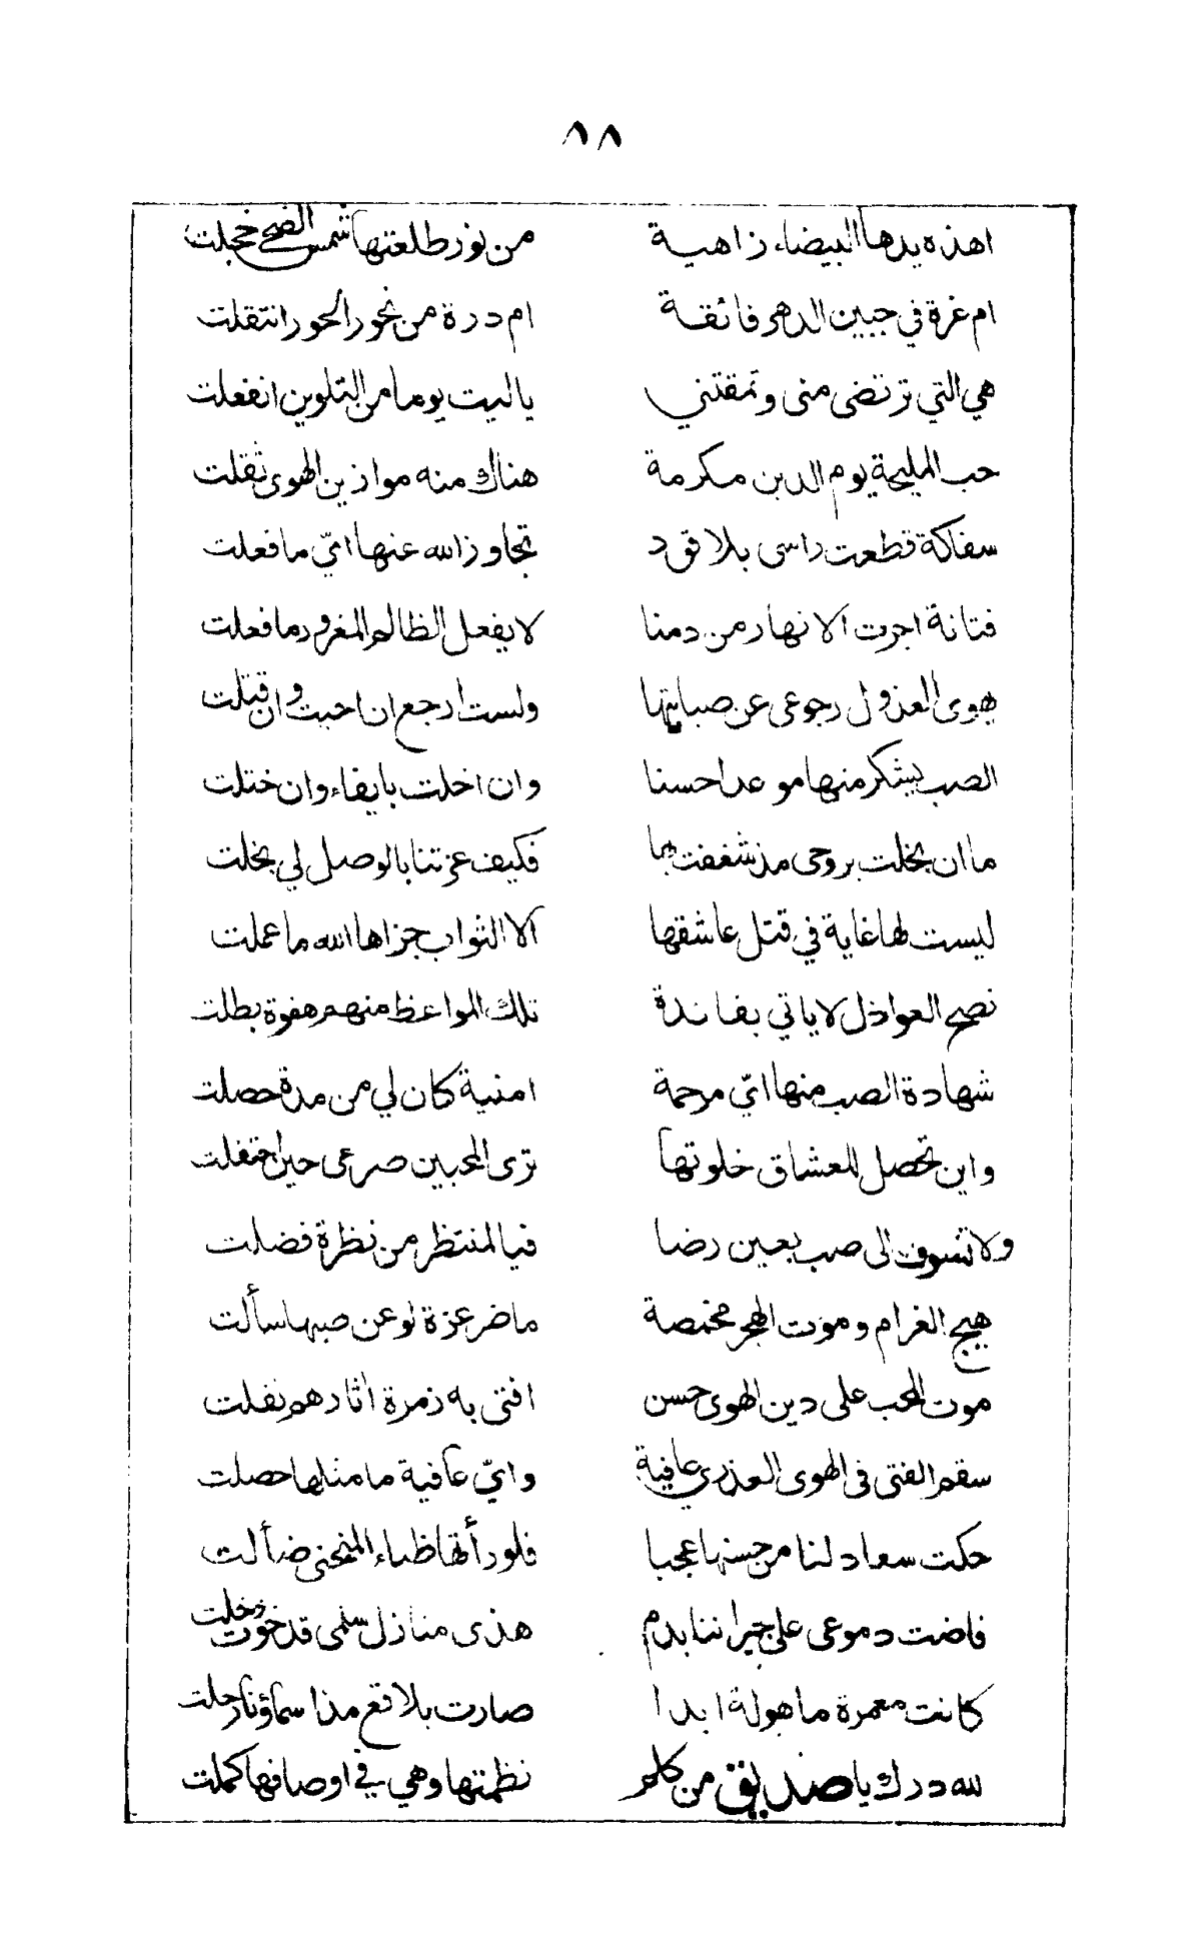 ٨٨
اهذه يدها البيضاء زاهية من نور طلعتها شمس الضحى خجلت
ام غرة في جبين الدهر فائقة ام درة من نحور الحور انتقلت
هي التي ترتضى منى وتمقتني يا ليت يوما من التلوين انفعلت
حب المليحة يوم الدين مكرمة هناك منه موازين الهوى ثقلت
سفاكة قطعت راسى بلا قود تجاوز الله عنها ايّ ما فعلت
فتانة اجرت الانهار من دمنا لا يفعل الظالم المغرور ما فعلت
يهوى العذول رجوعى عن صبابتها ولست ارجع ان احيت وان قتلت
الصب يشكر منها موعدا حسنا وان اخلت بايفاء وان ختلت
ما ان بخلت بروحى مذ شغفت بها فكيف عزتنا بالوصل لي بخلت
ليست لها غاية في قتل عاشقها الا الثواب جزاها الله ما عملت
نصح العواذل لا ياتي بفائدة تلك المواعظ منهم هفوة بطلت
شهادة الصب منها ايّ مرحمة امنية كان لي من مدة حصلت
واين تحصل للعشاق خلوتها ترى المحبين صرعى حين احتفلت
ولا تشوف الى صب بعين رضا فيا لمنتظر من نظرة فضلت
هيج الغرام وموت الهجر مخمصة ما ضر عزة لو عن صبها سألت
موت المحب على دين الهوى حسن افتى به زمرة اثارهم نفلت
سقم الفتى فى الهوى العذري عافية وايّ عافية ما مثلها حصلت
حكت سعاد لنا من حسنها عجبا فلو رأتها ظباء المنحنى ضألت
فاضت دموعى على جيراننا بدم هذى منازل سلمى قد خوت وخلت
كانت معمرة ماهولة ابدا صارت بلاقع مذ اسماؤنا رحلت
لله درك يا صديق من كلم نظمتها وهي في اوصافها كملت